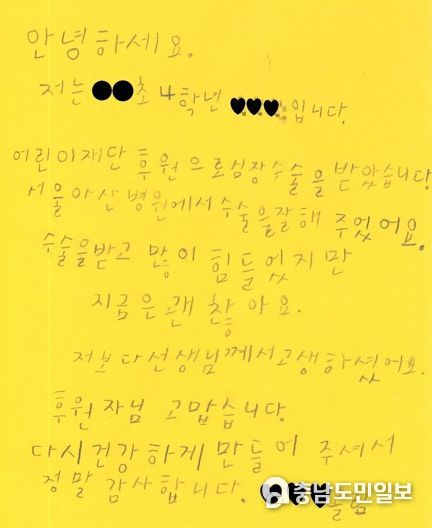 안녕하세요.
저는 ●●초 4학년 ♥♥♥입니다.
어린이재단 후원으로심장수술을 받았습니다
서울아산병원에서 수술을잘해 주었어요.
수술을받고 많이 힘들었지만
지금은 괜찮아요.
저보다선생님께서고생하셨어요.
후원자님 고맙습니다.
다시건강하게 만들어 주셔서
정말 감사합니다. ♥♥♥
올림
충남도민일보